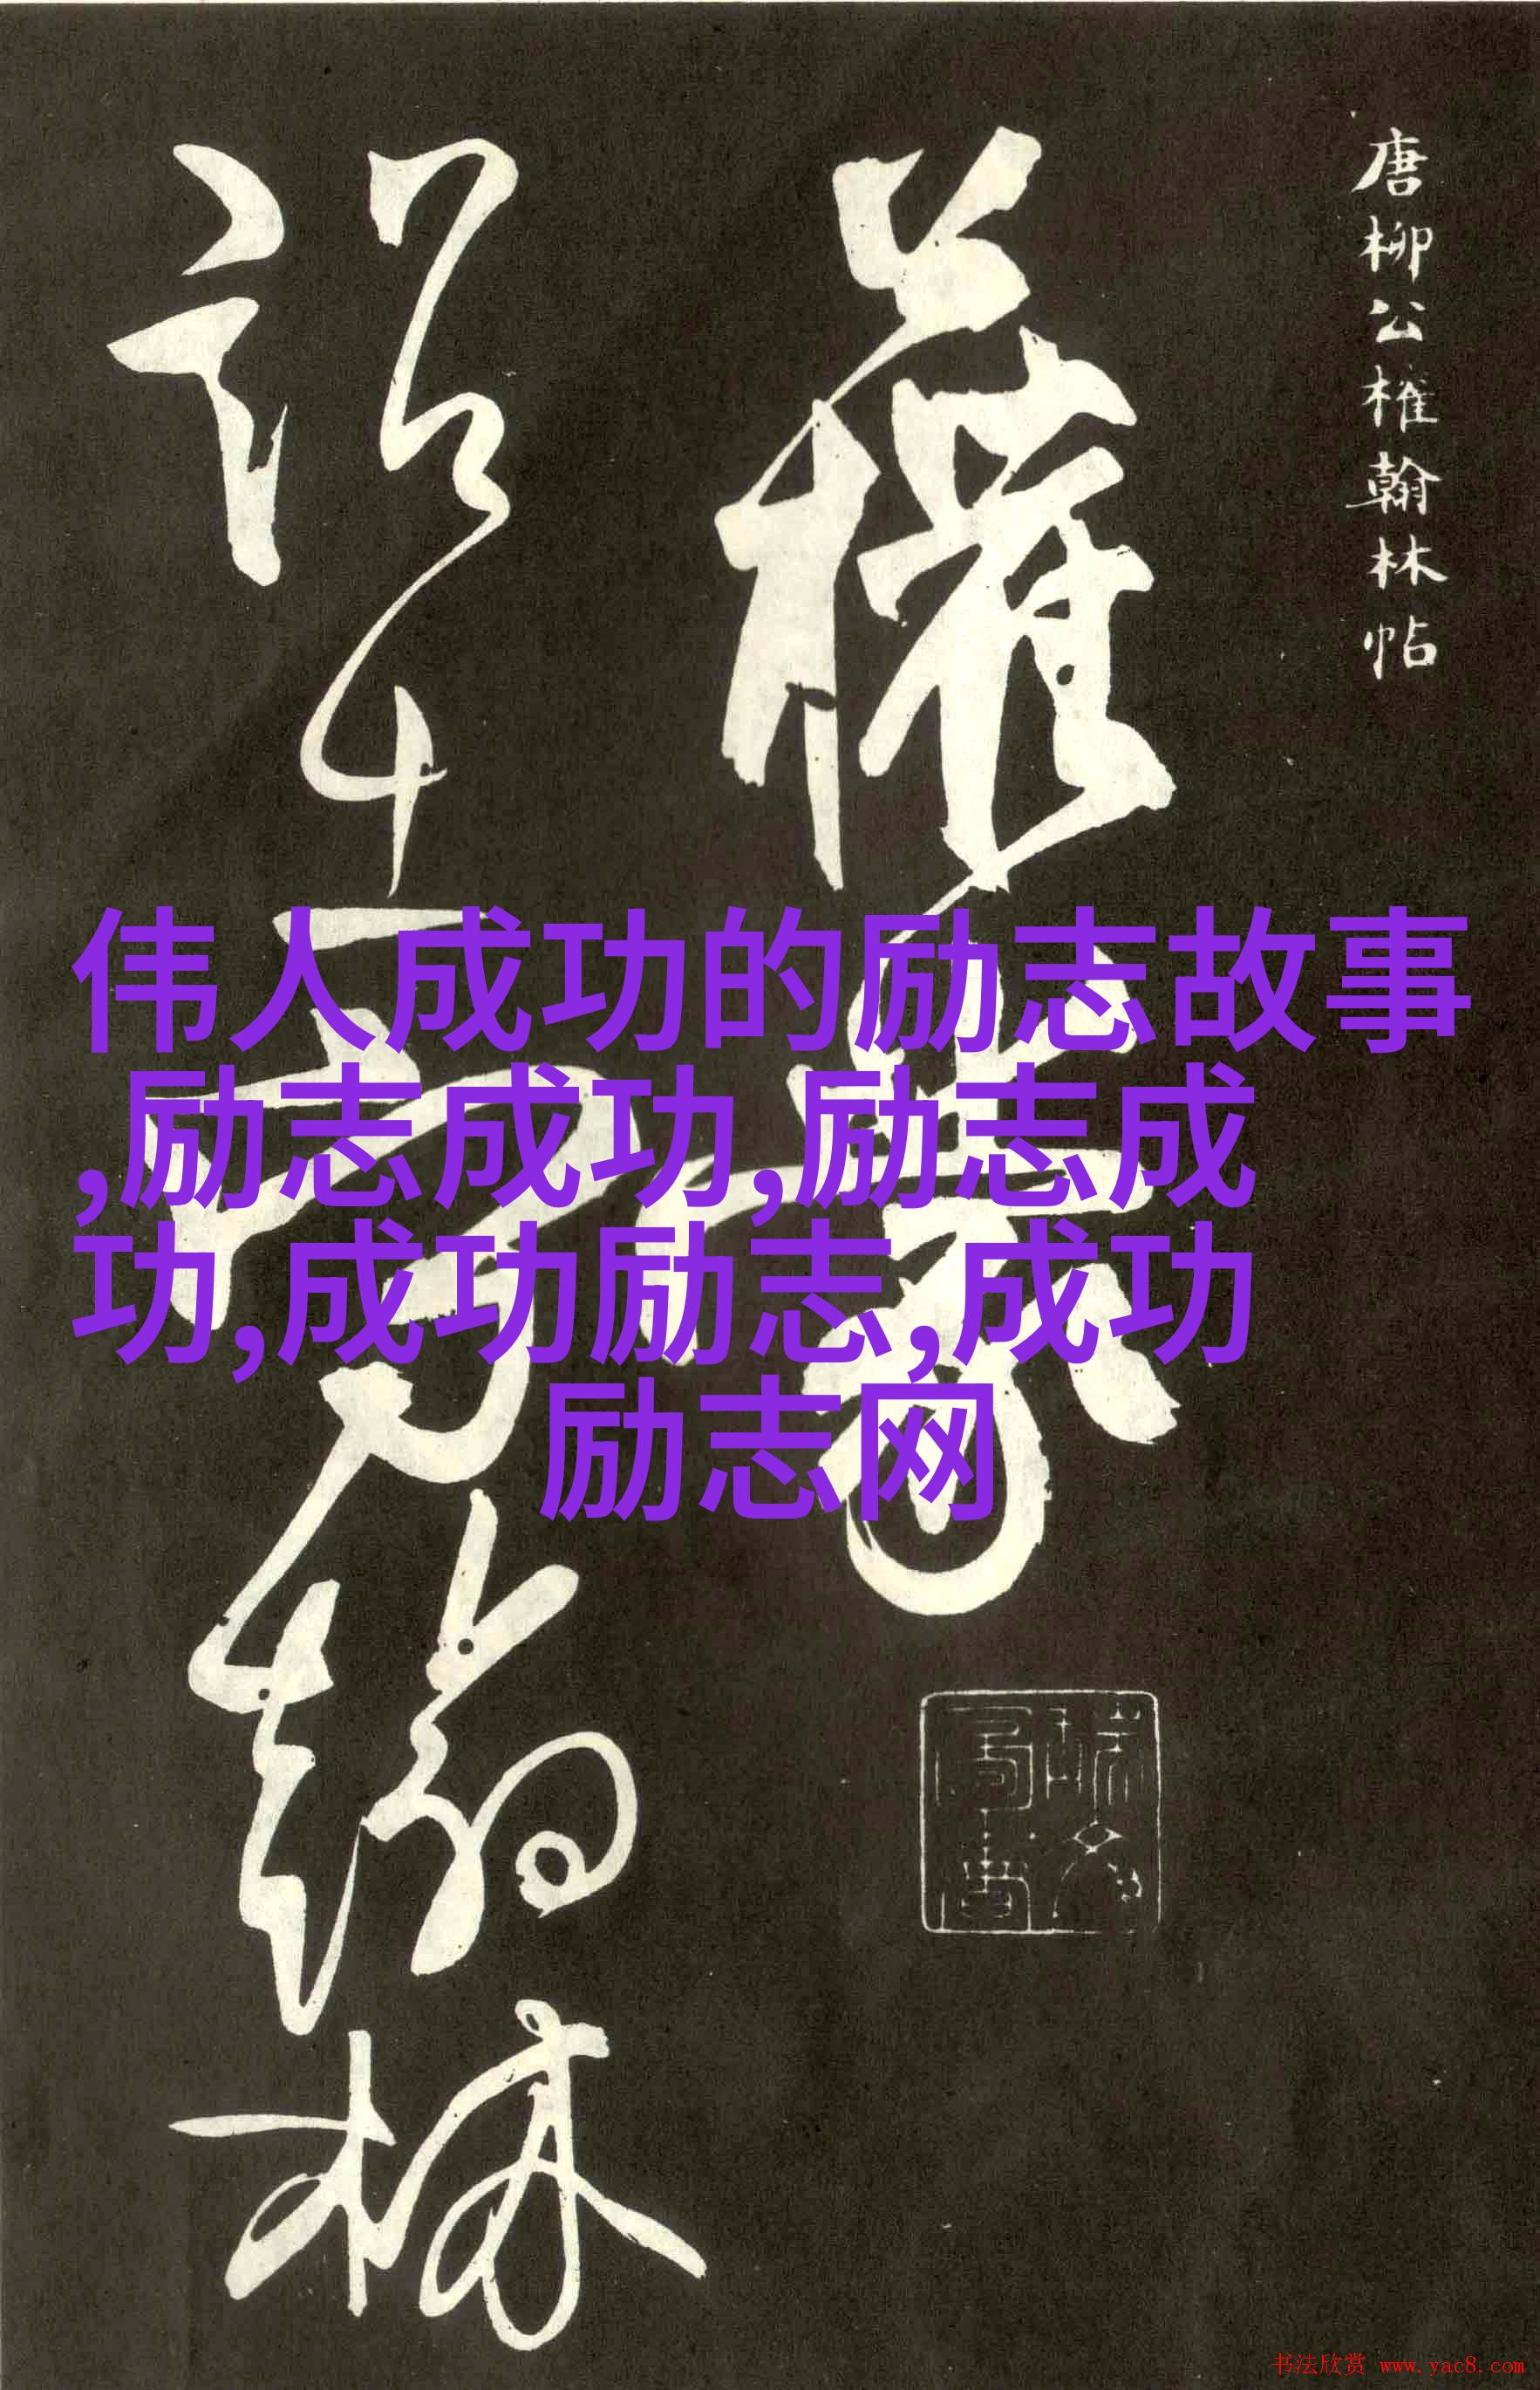 唐柳公權翰林帖
權蒙
詔出翰林
伟人成功的励志故事
,励志成功,励志成
功,成功励志,成功
励志网
书法欣赏 www.yac8.com